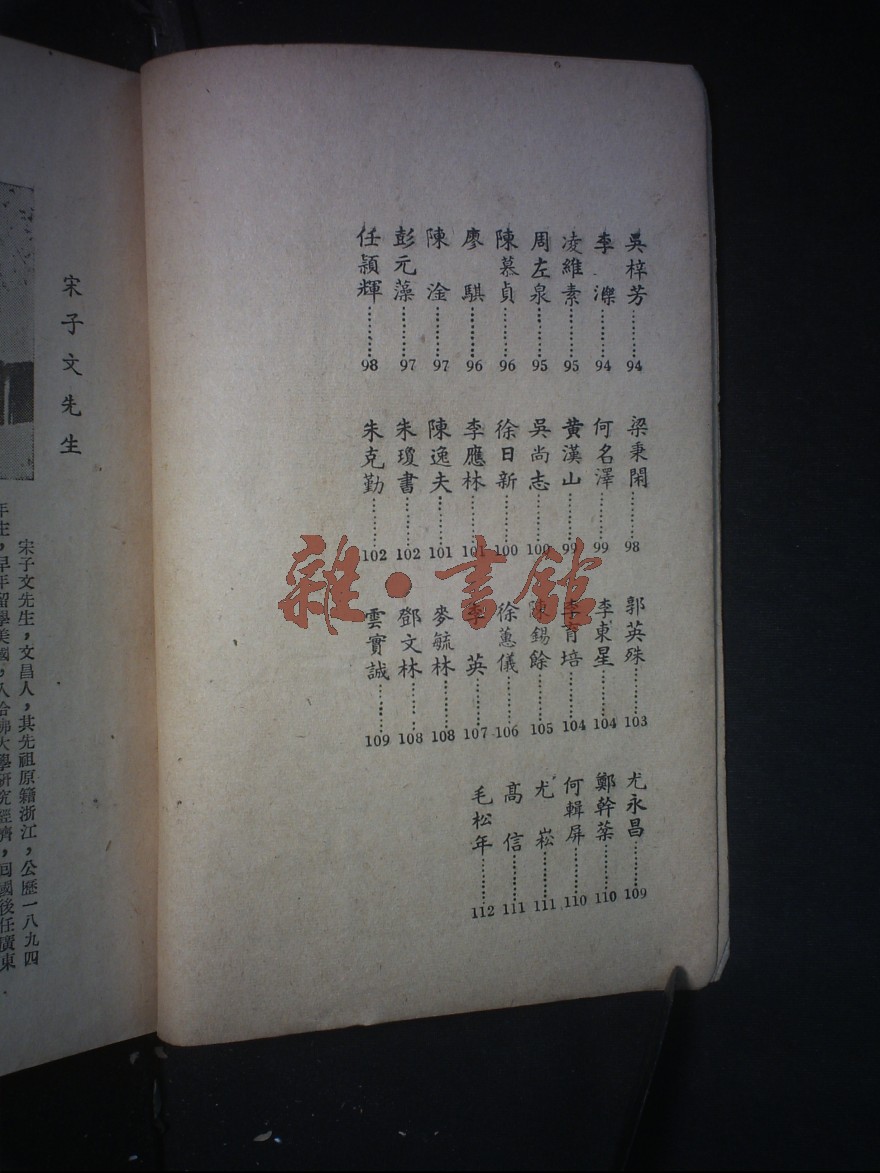 吳梓芳………94
李濼………94
凌維素………95
周左泉………95
陳慕貞………96
廖騏………96
陳淦………97
彭元藻………97
任穎輝………98
梁秉閑………98
何名澤………99
黃漢山………99
吳尚志………100
徐日新………100
李應林………101
陳逸夫………101
朱瓊書………102
朱克勤………102
郭英殊………103
李東星………104
李育培………104
陳錫餘………105
徐蕙儀………106
李英………107
麥毓林………108
鄧文林………108
雲實誠………109
尤永昌………109
鄭幹棻………110
何輯屏………110
尤崧………111
高信………111
毛松年………112
宋子文先生
宋子文先生，文昌人，其先祖原籍浙江，公歷一八九四
年生，早年留學美國，入哈佛大學研究經濟，回國後任廣東
雜·書館